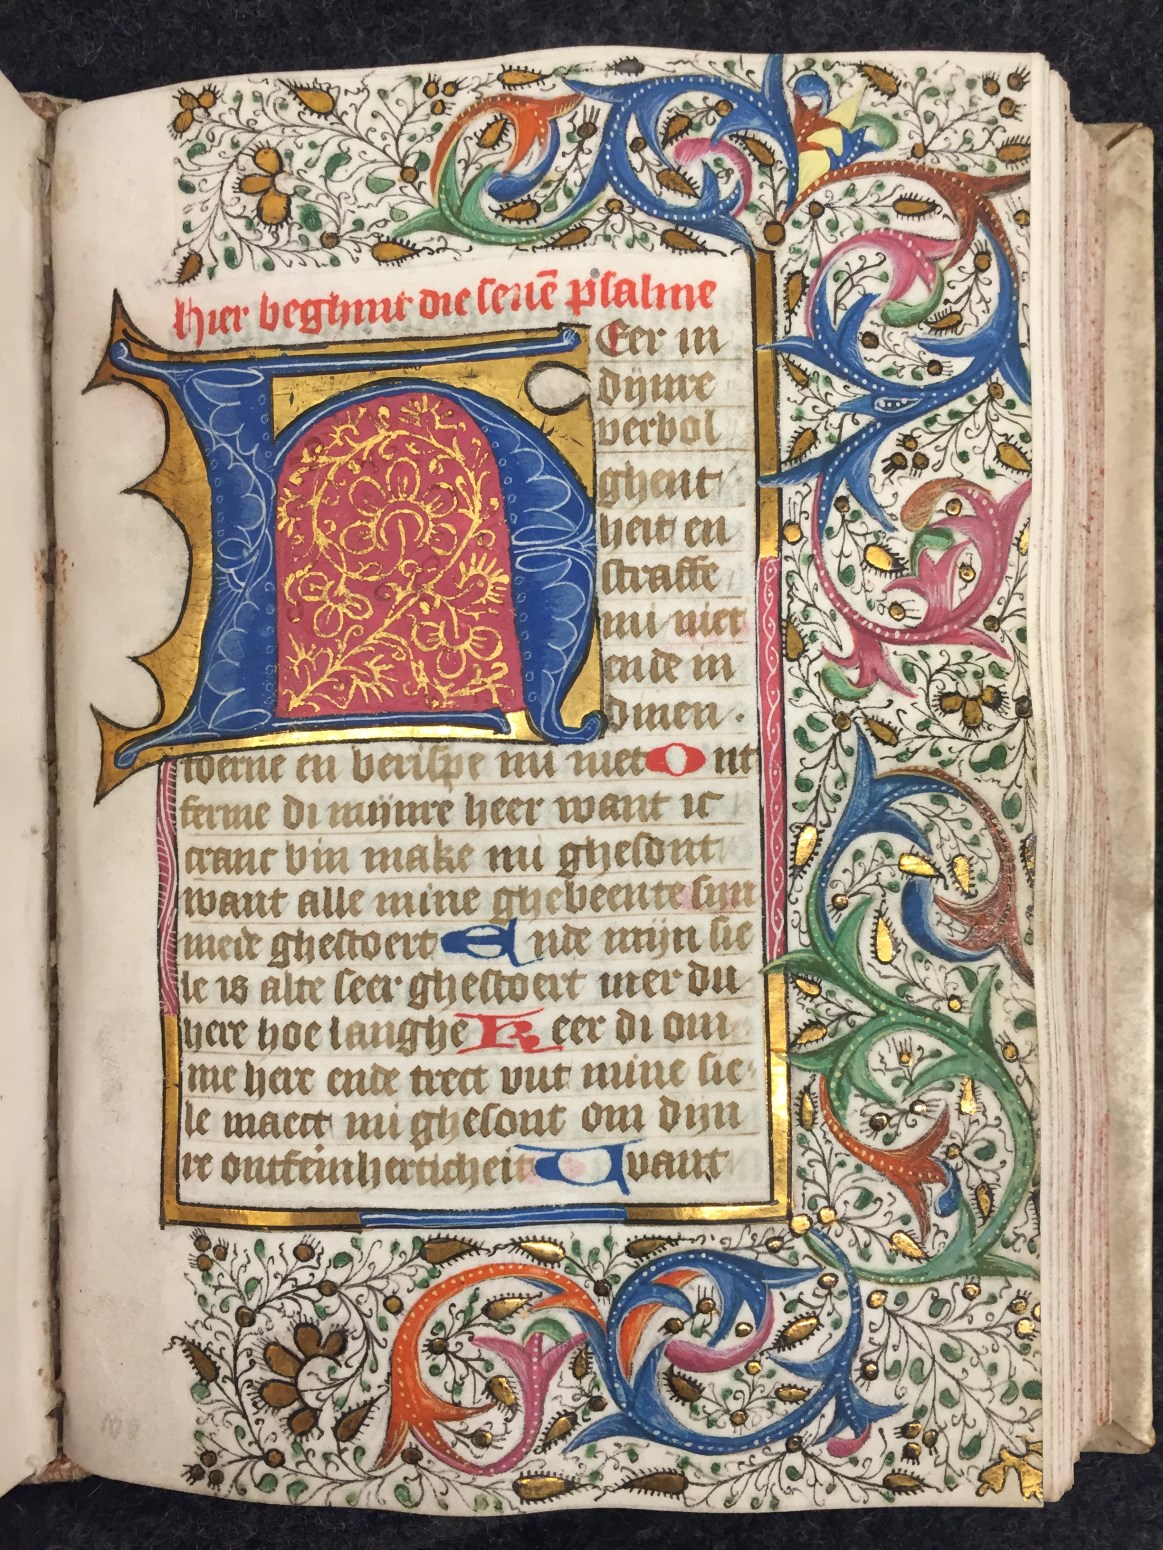 hier beghint die seuē psalme
HEer in
dijnre
verbol
ghent
heit en
straffe
mi niet
ende in
dinen
toerne en berispe mi niet Ont
ferme di mijnre heer want ic
cranc bin make mi ghesont
want alle mine ghebeente sijn
mede ghestoert Ende mijn sie
le is alte seer ghestoert mer du
here hoe langhe Keer di om
me here ende trect vut mine sie
le maect mi ghesont om dijn
re ontfermherticheit Want